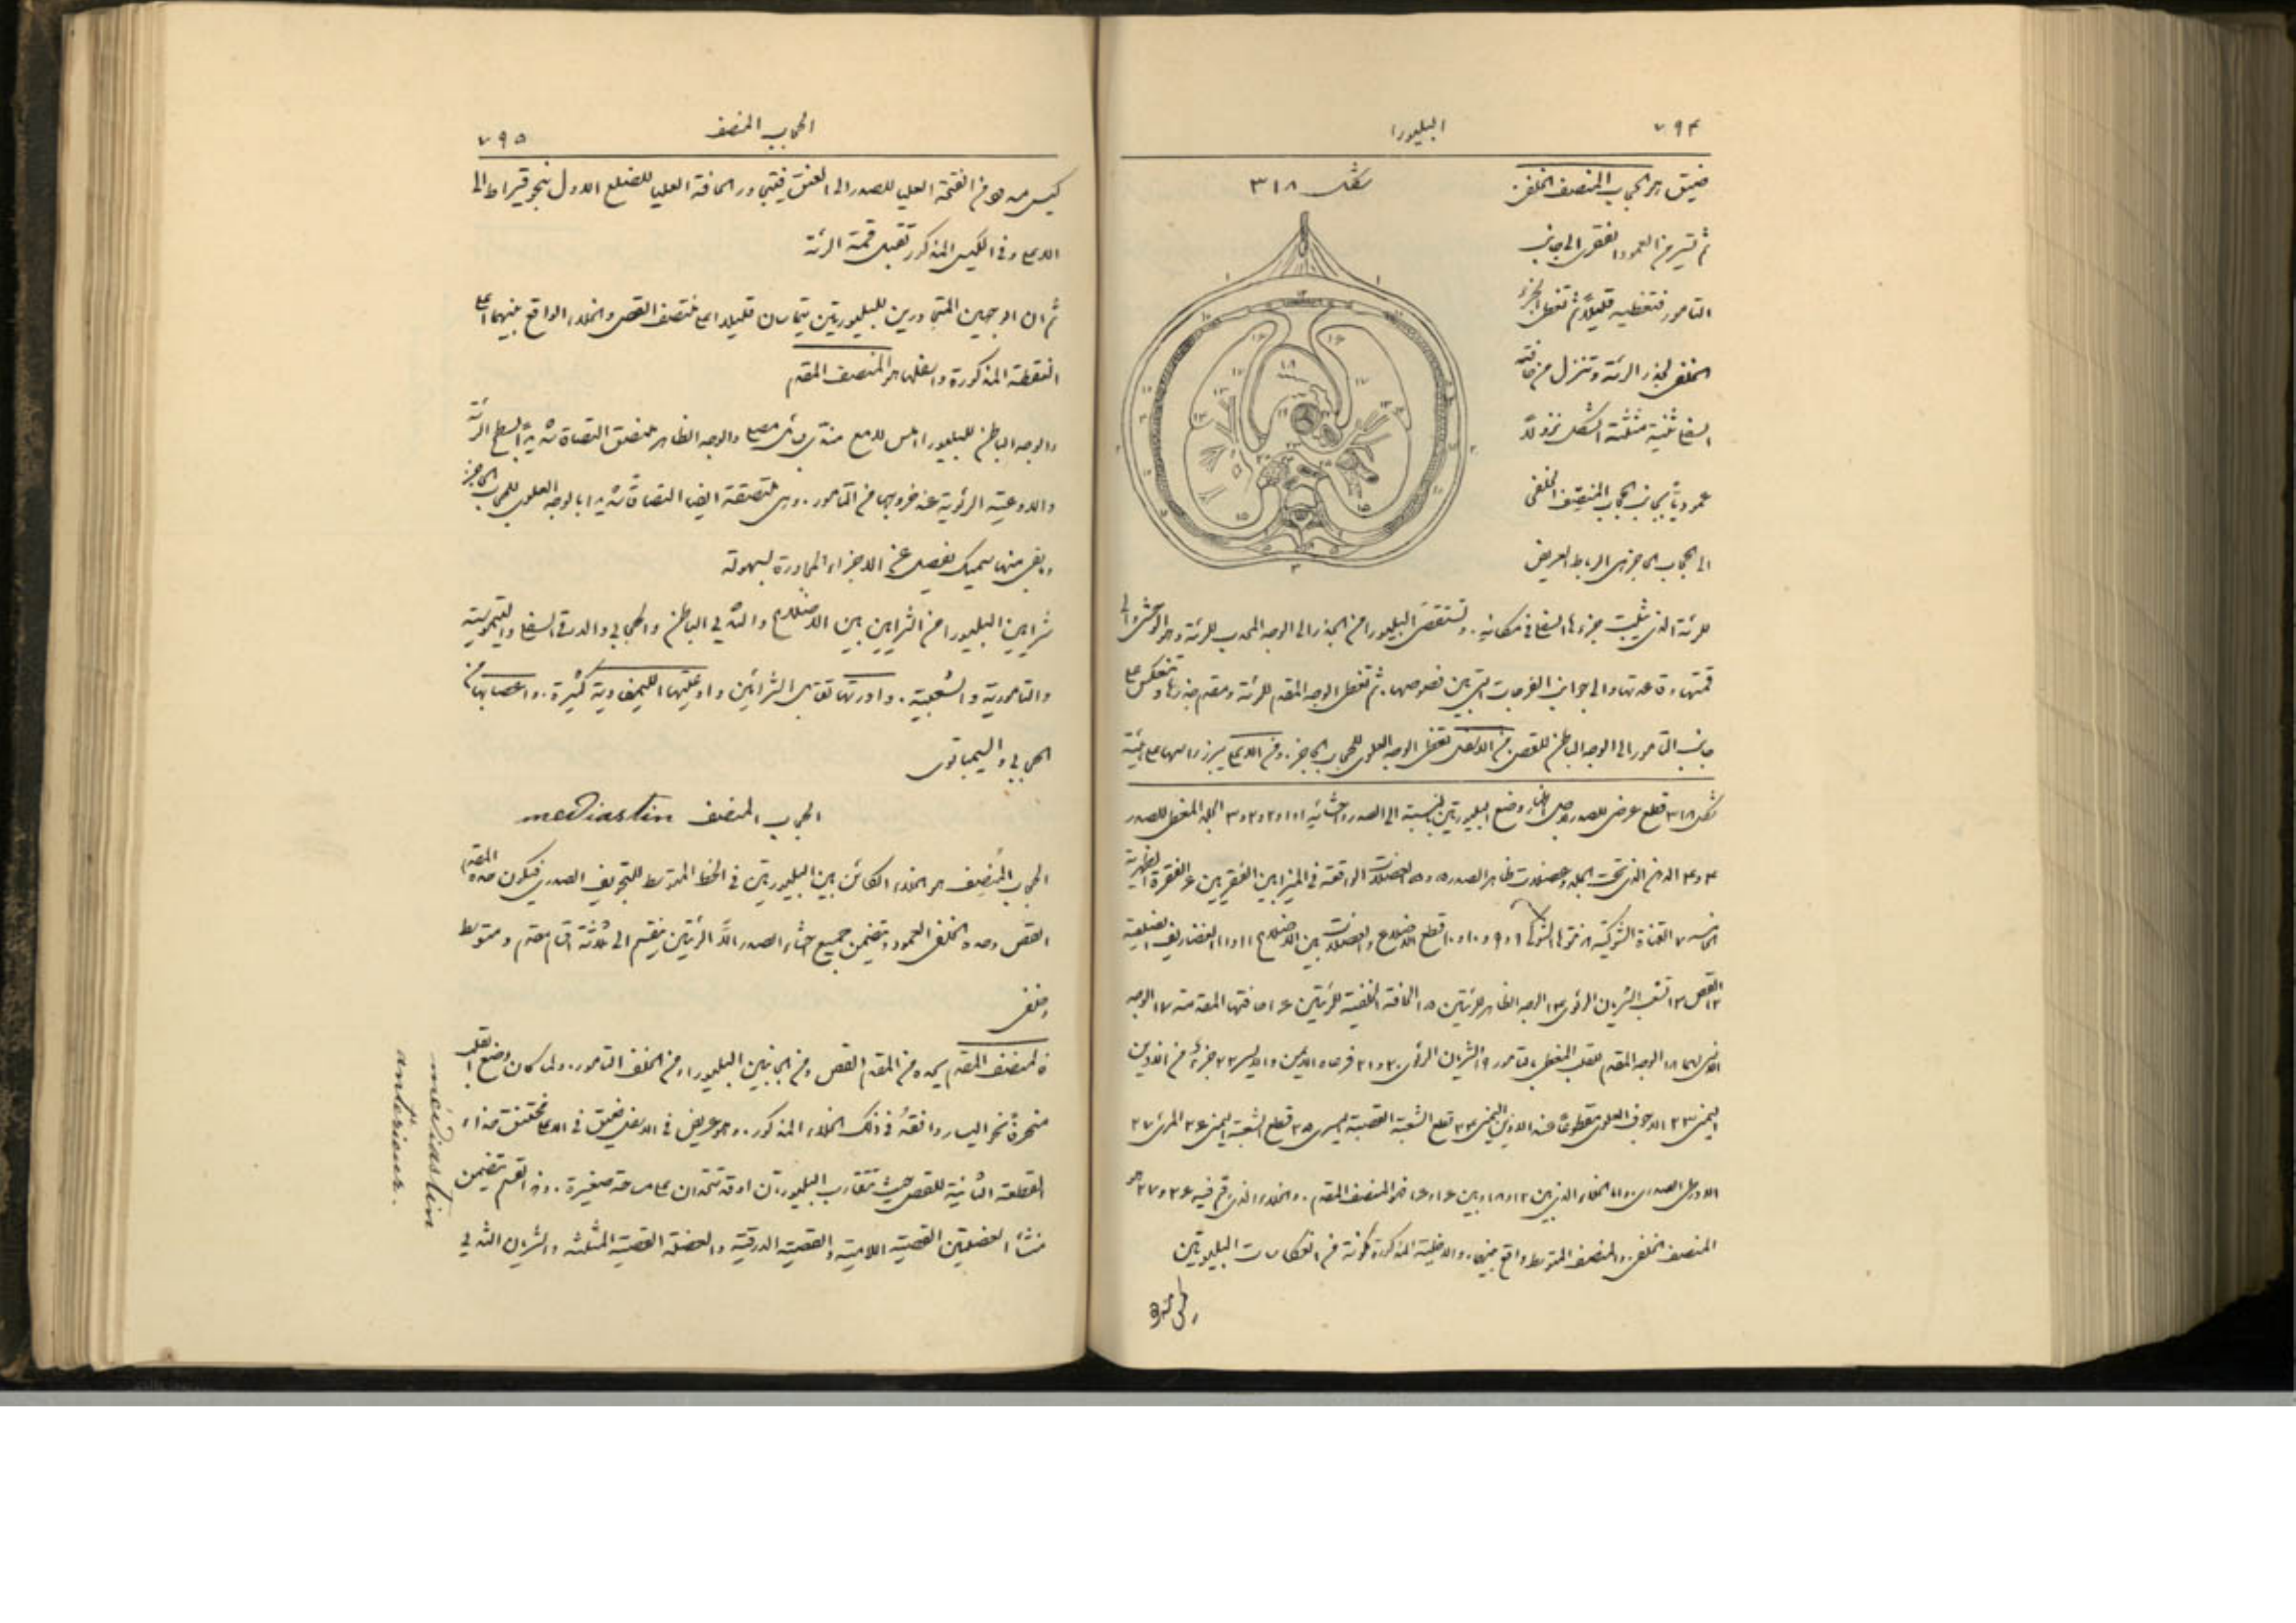 ٧٩٤
البليورا
ضيق هو الحجاب المنصف الخلفي
شكل ٣١٨
ثم تسير من العمود الفقري الى جانب
التامور فتغطيه قليلاً ثم تغطي الجزء
الخلفي لجذر الرئة وتنزل من حافته
السفلى ثنية مثلثة الشكل نزولاً
عمودياً بجانب الحجاب المنصف الخلفي
الى الحجاب الحاجز هي الرباط العريض
للرئة الذي يثبت جزءها السفلي في مكانه. وتستقصى البليورا من الجذر الى الوجه المحدب للرئة وهو الوحشي والى
قمتها وقاعدتها والى جوانب الفرجات التي بين فصوصها. ثم تغطي الوجه المقدم للرئة ومقدم جذرها وتنعكس على
جانب التامور الى الوجه الباطن للقص. من الاسفل تغطي الوجه العلوي للحجاب الحاجز. ومن الاعلى يبرز راسها على هيئة
شكل ٣١٨ قطع عرضي للصدر وضع البليورتين بالنسبة الى الصدر واحشائه ١ و١ و٢ و٢ و٣ الجلد المغطي للصدر
٤ و٤ الدهن الذي تحت الجلد وعضلات ظاهر الصدر ٥ و٥ العضلات الواقعة في الميزابين الفقريين ٦ الفقرة الظهرية
الخامسة ٧ القناة الشوكية ٨ نتوها الشوكي ٩ و٩ و١٠ و١٠ قطع الاضلاع والعضلات بين الاضلاع ١١ و١١ الغضاريف الضلعية
١٢ القص ١٣ تشعب الشريان الرئوي ١٤ الوجه الظاهر للرئتين ١٥ الحافة الخلفية للرئتين ١٦ حافتها المقدمة ١٧ الوجه
الانسي لهما ١٨ الوجه المقدم للقلب المغطى بالتامور ١٩ الشريان الرئوي ٢٠ و٢١ فرعاه الايمن والايسر ٢٢ جزء من الاذين
اليمنى ٢٣ الاجوف العلوي مقطوعاً عند الاذين اليمنى ٢٤ قطع الشعبة القصبية اليسرى ٢٥ قطع الشعبة اليمنى ٢٦ المريء ٢٧
الاورطي الصدري. واما الخلاء الذي بين ١٢ و١٨ وبين ١٦ و١٦ فهو المنصف المقدم. والخلاء الذي رقم فيه ٢٦ و٢٧ هو
المنصف الخلفي. والمنصف المتوسط واقع بينهما. والاخلية المذكورة مكونة من انعكاسات البليورتين
٧٩٥
الحجاب المنصف
كيس من الفتحة العليا للصدر الى العنق فيتجاوز الحافة العليا للضلع الاول بنحو قيراط الى
الاعلى وفي الكيس المذكور تقبل قمة الرئة
ثم ان الوجهين المتجاورين للبليورتين يتماسان قليلا اعلى منتصف القص والخلاء الواقع بينهما اعلى
النقطة المذكورة واسفلها هو المنصف المقدم
والوجه الباطن للبليورا املس لامع مندى بسائل مصلي والوجه الظاهر ملتصق التصاقاً شديداً بسطح الرئة
والاوعية الرئوية عند خروجها من التامور. وهي ملتصقة ايضا التصاقاً شديدا بالوجه العلوي للحجاب الحاجز
وبقي منها سميك يفصل عن الاجزاء المجاورة بسهولة
شرايين البليورا من الشرايين بين الاضلاع والثديي الباطن والحجابي والدرقي السفلي والتيموسية
والتامورية والشعبية. واوردتها تقابل الشرائين واوعيتها الليمفاوية كثيرة. واعصابها من
الحجابي والسيمباتوي
الحجاب المنصف mediastin
الحجاب المنصف هو الخلاء الكائن بين البليورتين في الخط المتوسط للتجويف الصدري فيكون حده المقدم
القص وحده الخلفي العمود ويتضمن جميع احشاء الصدر الاّ الرئتين ينقسم الى ثلاثة اقسام مقدم ومتوسط
وخلفي
فالمنصف المقدم يحده من المقدم القص ومن الجانبين البليورا ومن الخلف التامور. ولما كان وضع القلب
منحرفاً نحو اليسار وافقهُ في ذلك الخلاء المذكور. وهو عريض في الاسفل ضيق في الاعلى مختنق حذاء
القطعة الثانية للقص حيث تتقارب البليورتان او قد تتحدان على مساحة صغيرة. وهذا القسم يتضمن
منشأ العضلتين القصية اللامية والقصية الدرقية والعضلة القصية المثلثة والشريان الثديي
médiastin
antérieur.